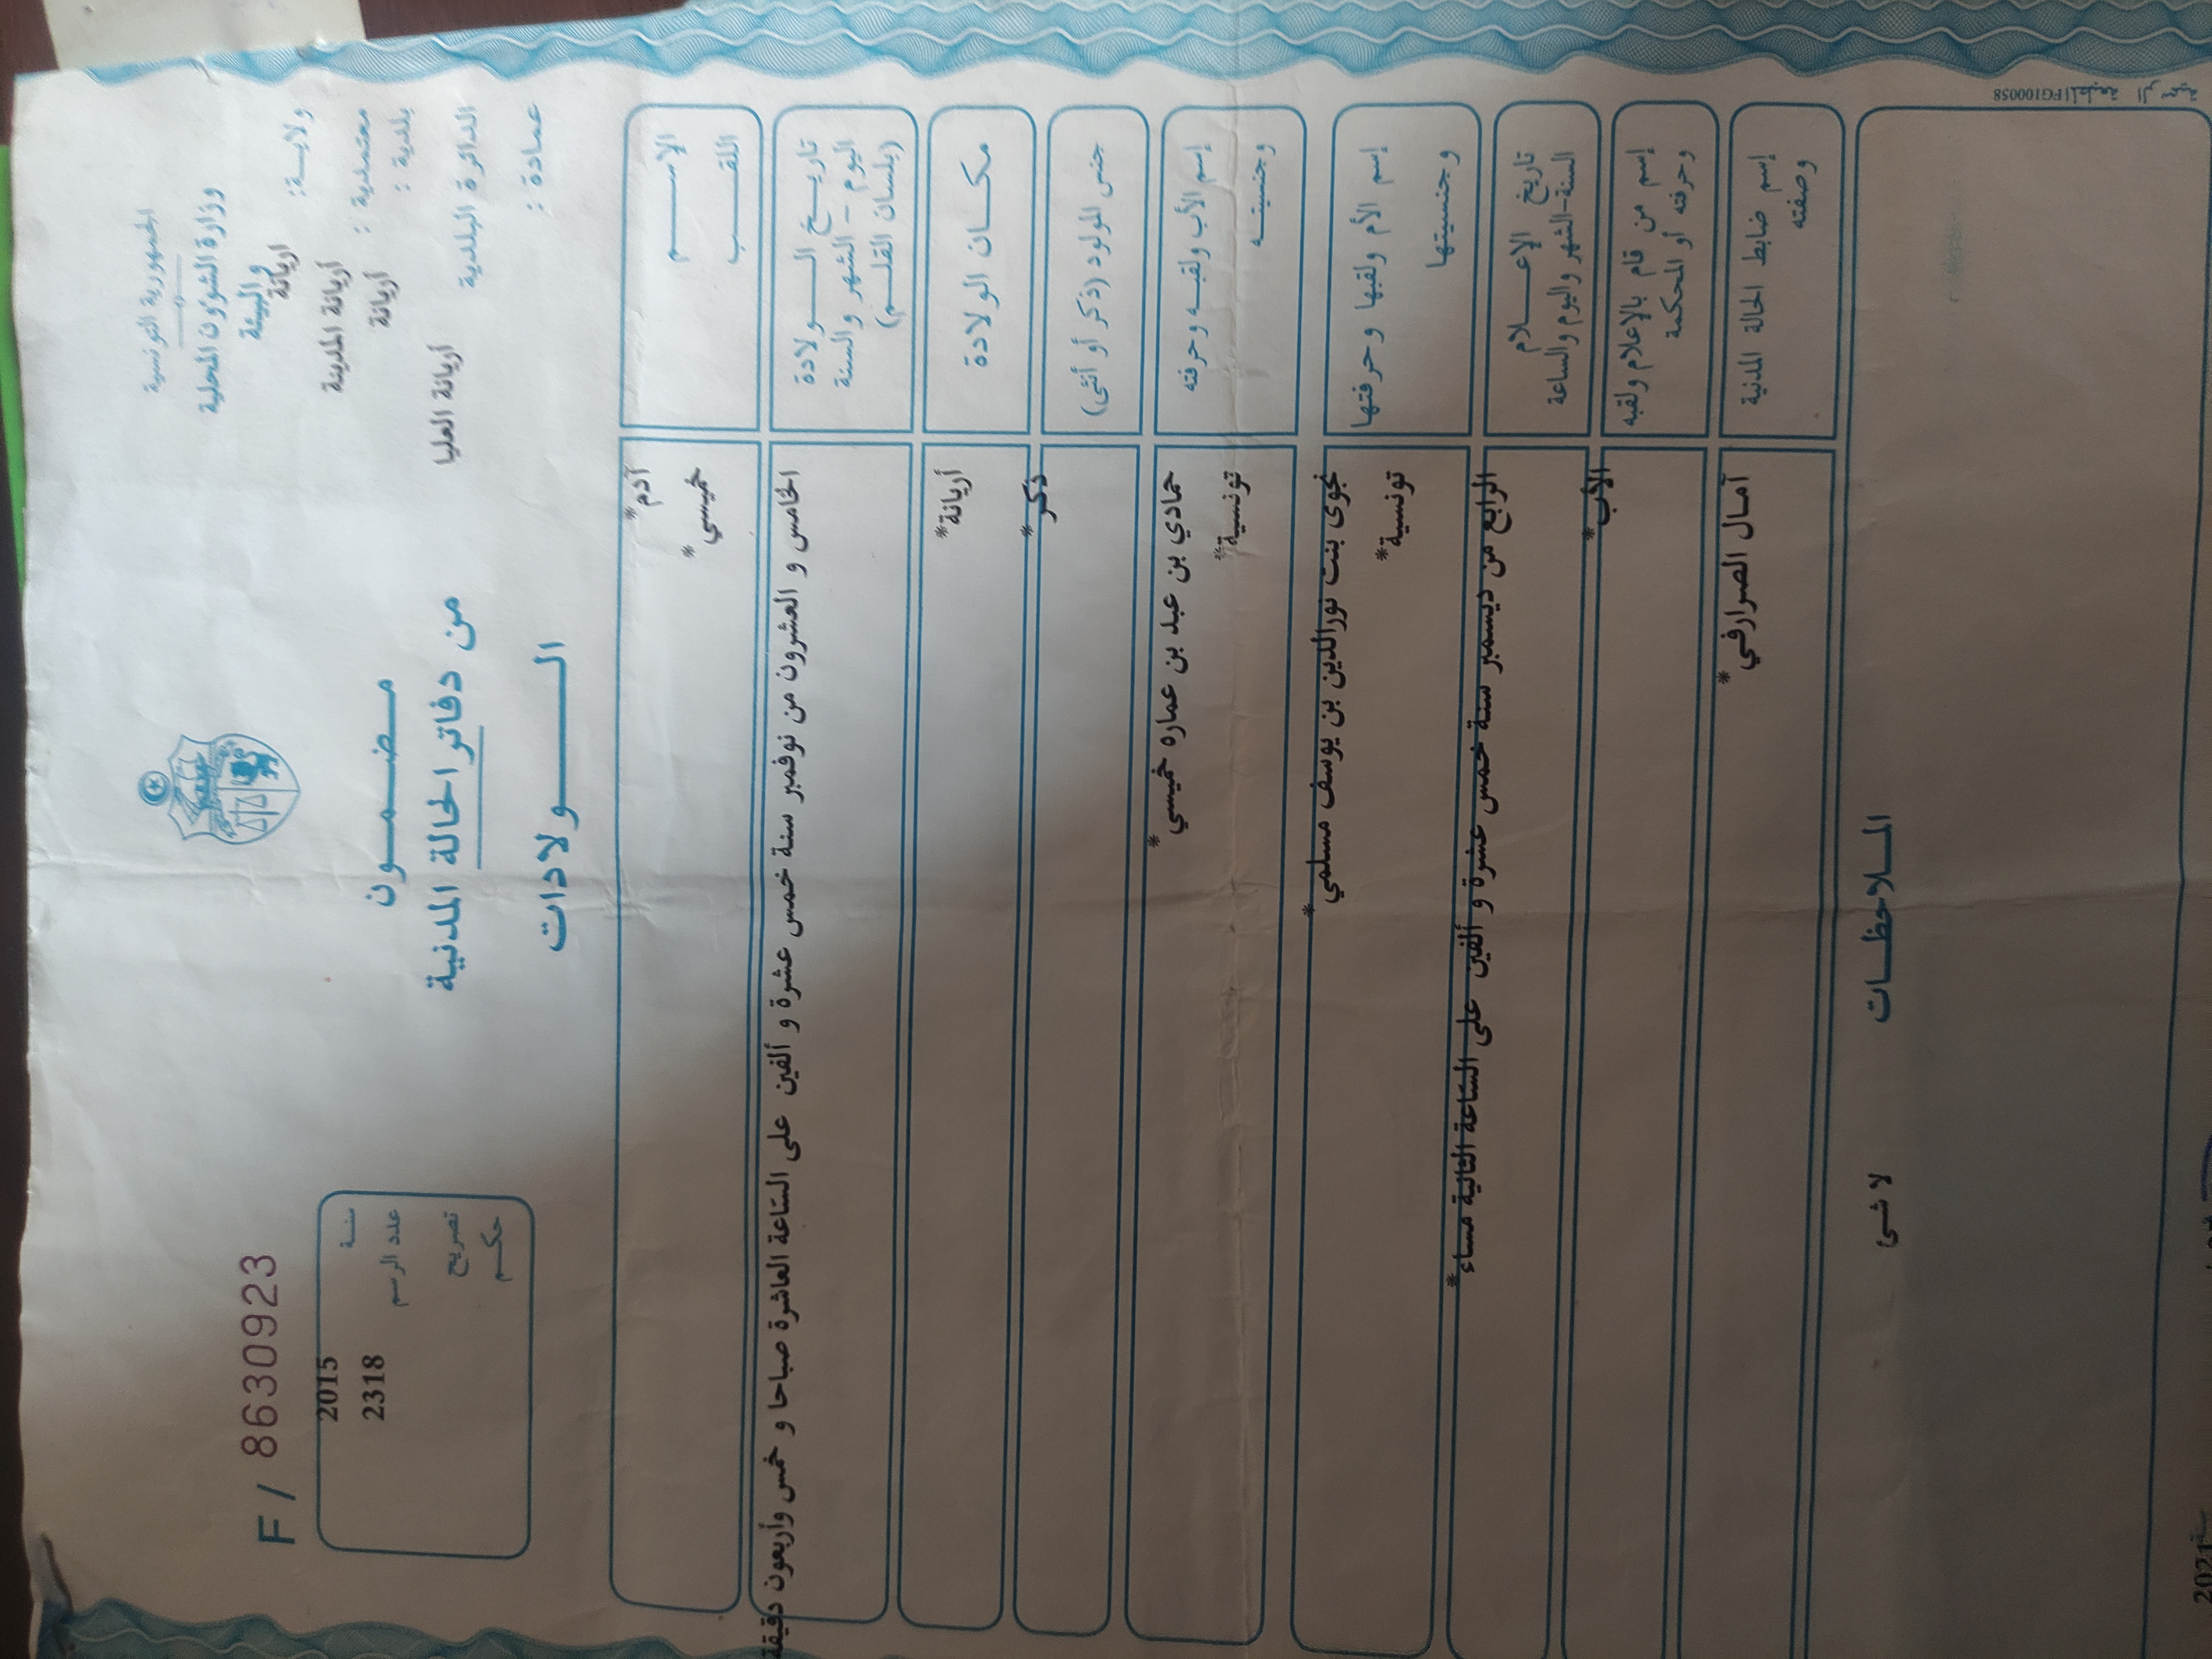 الجمهورية التونسية
وزارة الشؤون المحلية
والبيئة
ولايـــة: اريانة
معتمدية : أريانة المدينة
بلدية : أريانة
الدائرة البلدية أريانة العليا
عمادة :
مـضـمـــون
من دفاتر الحالة المدنية
الــــــولادات
F / 86309923
سنــة 2015
عدد الرسم 2318
تصريح
حكـــم
الإســــــم آدم*
اللقــــب خميسي*
تاريـــخ الـــــولادة
اليوم - الشهر والسنة
(بلسان القلـــم)
الخامس و العشرون من نوفمبر سنة خمس عشرة و ألفين على الساعة العاشرة صباحا و خمس وأربعون دقيقة
مكـــان الولادة أريانة*
جنس المولود (ذكر أو أنثى) ذكر*
إسم الأب ولقبـه وحرفته حمادي بن عبد بن عماره خميسي*
وجنسيتـــه تونسية*
إسم الأم ولقبها وحرفتها نجوى بنت نورالدين بن يوسف مسلمي*
وجنسيتها تونسية*
تاريخ الإعـــــلام
السنة-الشهر واليوم والساعة
الرابع من ديسمبر سنة خمس عشرة و ألفين على الساعة التالية مساء*
إسم من قام بالإعلام ولقبه
وحرفته أو المحكمة
الأب*
إسم ضابط الحالة المدنية
وصفته
آمال الصرارفي*
المــلاحظــات
لا شئ
PG100058
2021